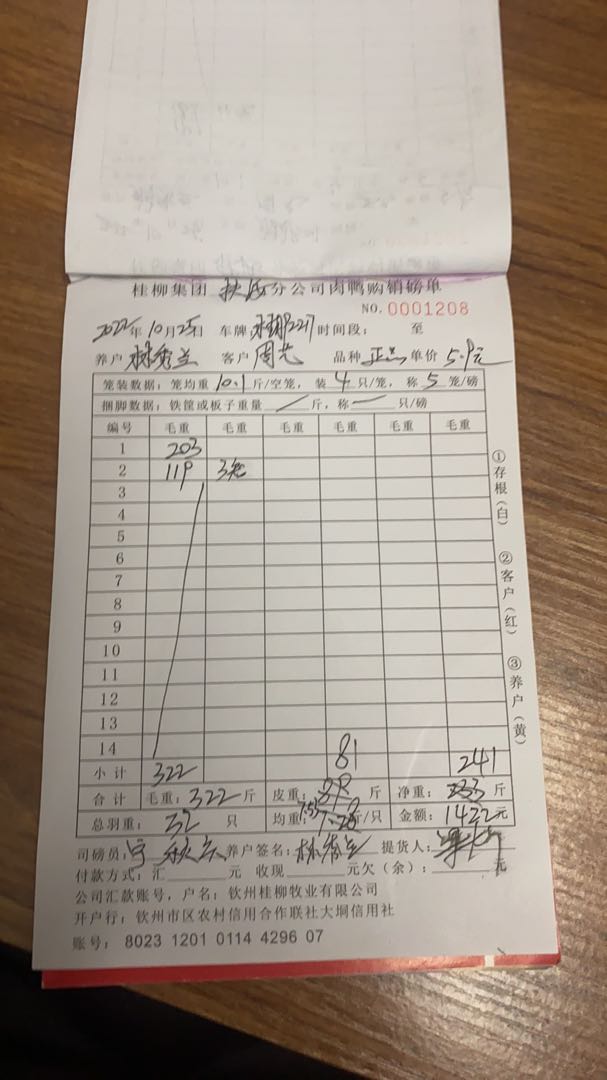 桂柳集团 扶绥分公司肉鸭购销磅单
NO. 0001208
2022年10月25日 车牌: 时间段: 至
养户 林秀兰 客户 周芯 品种 正品 单价 5.9元
笼装数据: 笼均重 10.1 斤/空笼, 装 4 只/笼, 称 5 笼/磅
捆脚数据: 铁筐或板子重量 / 斤, 称 一 只/磅
编号 毛重 毛重 毛重 毛重 毛重 毛重
1 203
2 119 3笼
3
4
5
6
7
8
9
10
11
12
13
14 81
小计 322 241
合计 毛重: 322 斤 皮重: 89 斤 净重: 233 斤
总羽重: 32 只 均重: 7.53 7.28 斤/只 金额: 1422元
司磅员: 养户签名: 林秀兰 提货人:
付款方式: 汇 元 收现 元欠(余): 元
公司汇款账号, 户名: 钦州桂柳牧业有限公司
开户行: 钦州市区农村信用合作联社大垌信用社
账号: 8023 1201 0114 4296 07
①存根(白)
②客户(红)
③养户(黄)